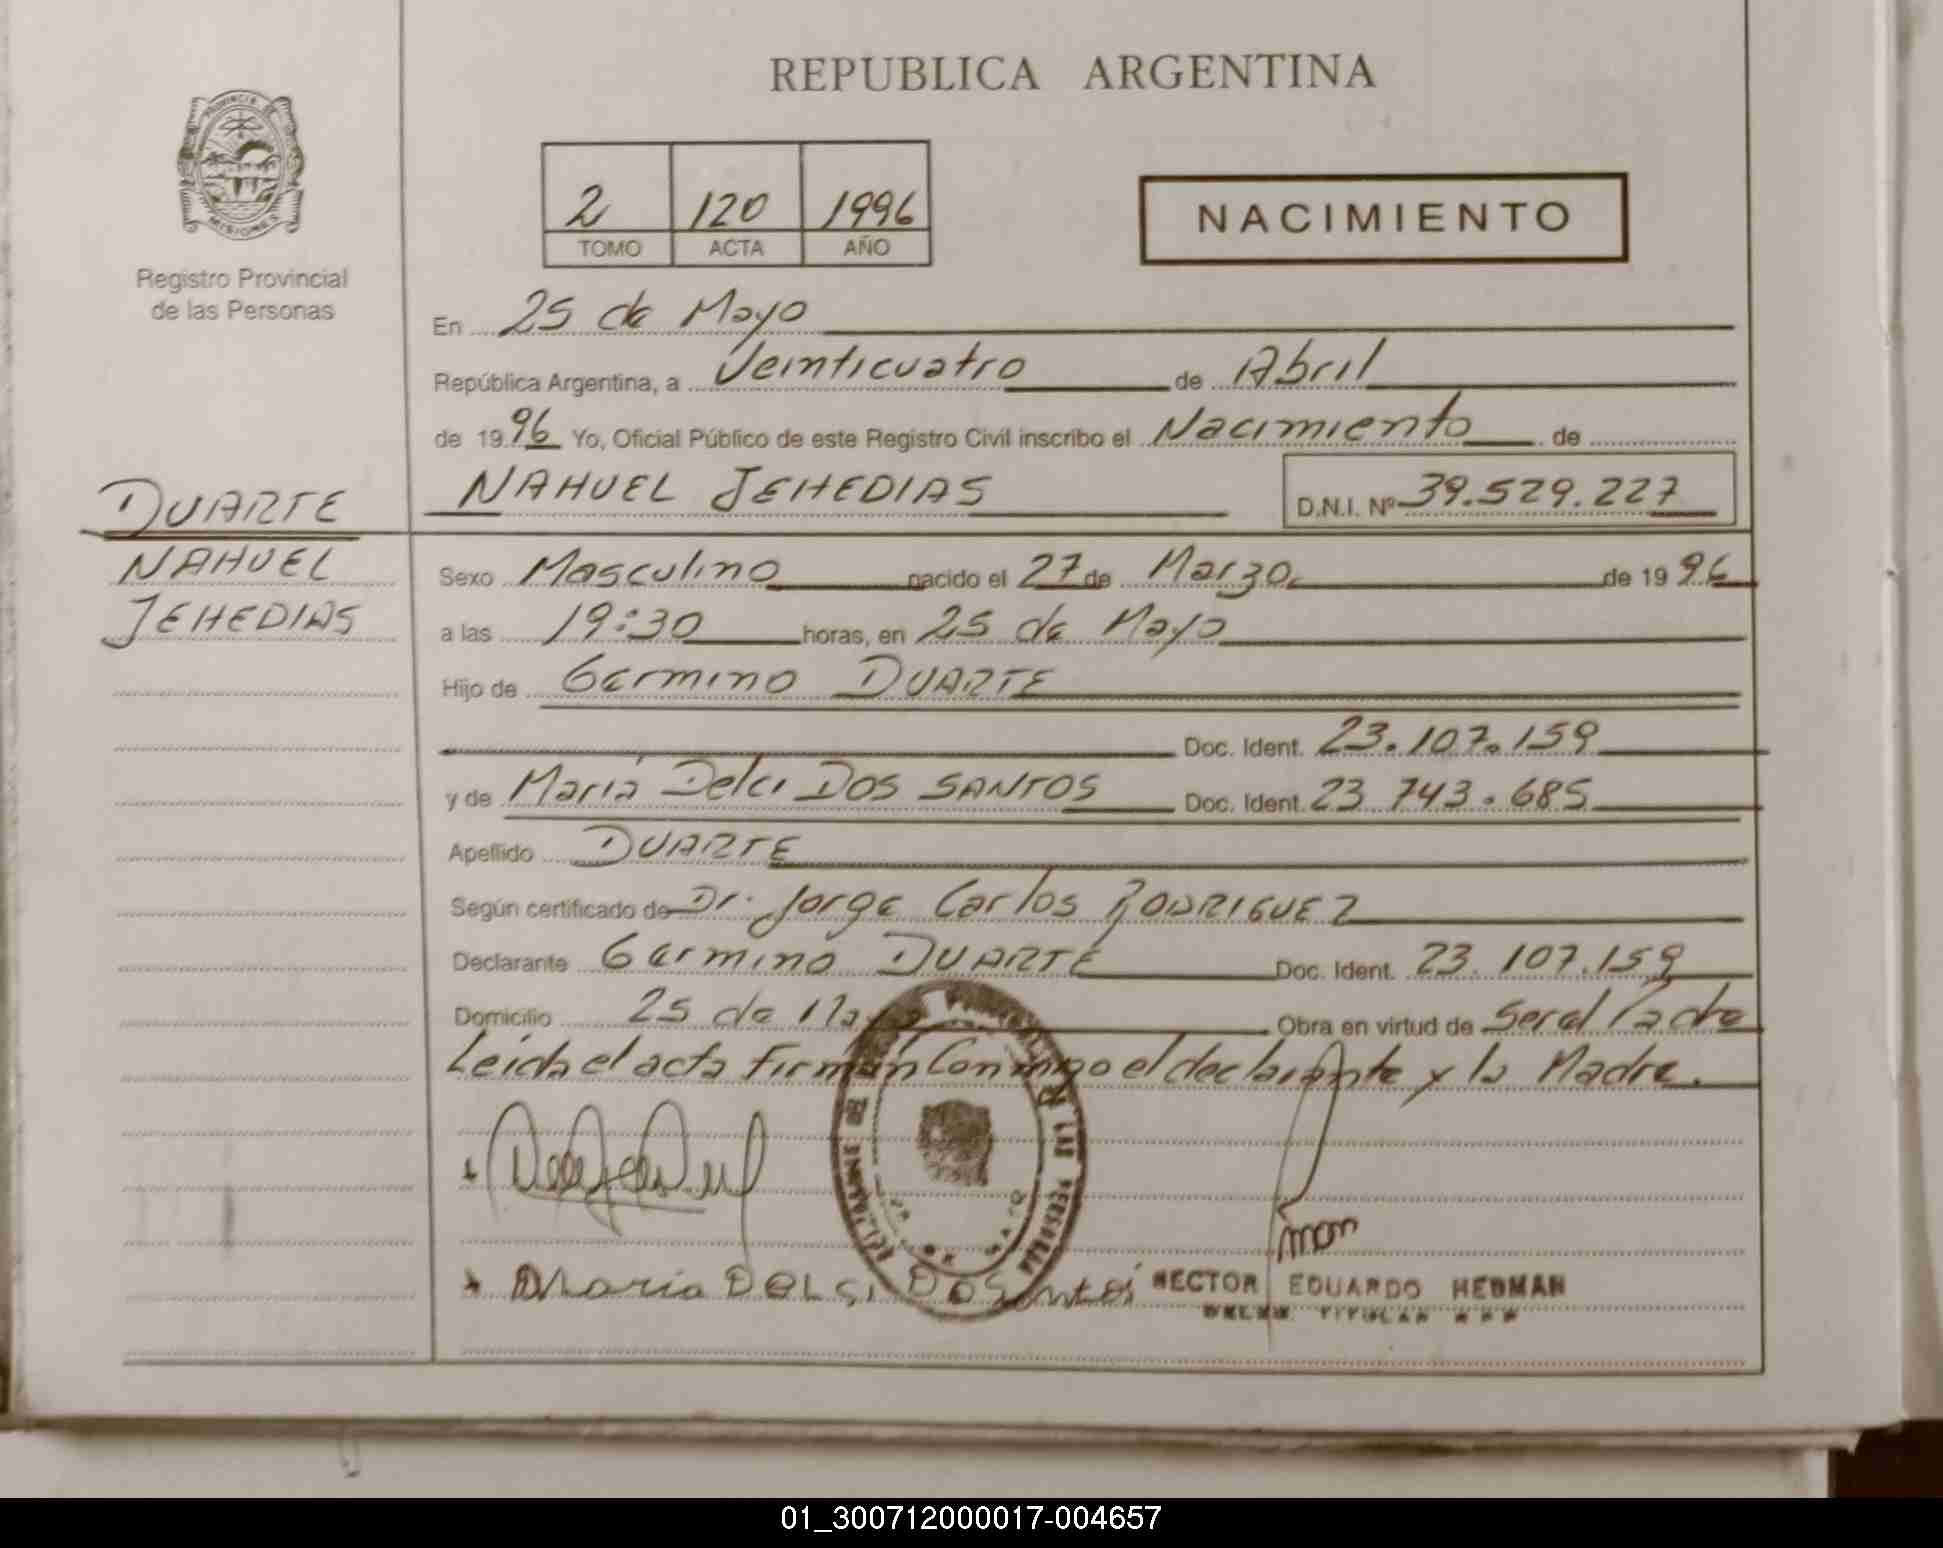 REPUBLICA ARGENTINA
PROVINCIA DE
MISIONES
Registro Provincial
de las Personas
2 120 1996
TOMO ACTA AÑO
NACIMIENTO
En 25 de Mayo
República Argentina, a Veinticuatro de Abril
de 1996 Yo, Oficial Público de este Registro Civil inscribo el Nacimiento de
NAHUEL JEHEDIAS D.N.I. Nº 39.529.227
DUARTE
NAHUEL
JEHEDIAS
Sexo Masculino nacido el 27 de Marzo de 1996
a las 19:30 horas, en 25 de Mayo
Hijo de Germino DUARTE
Doc. Ident. 23.107.159
y de María Delci DOS SANTOS Doc. Ident. 23 743.685
Apellido DUARTE
Según certificado de Dr. Jorge Carlos RODRIGUEZ
Declarante Germino DUARTE Doc. Ident. 23.107.159
Domicilio 25 de Mayo Obra en virtud de Ser el Padre
Leida el acta Firman Conmigo el declarante y la Madre.
DE LAS PERSONAS
Maria DELSI DOS
HECTOR EDUARDO HEDMAN
TITULAR
01_300712000017-004657